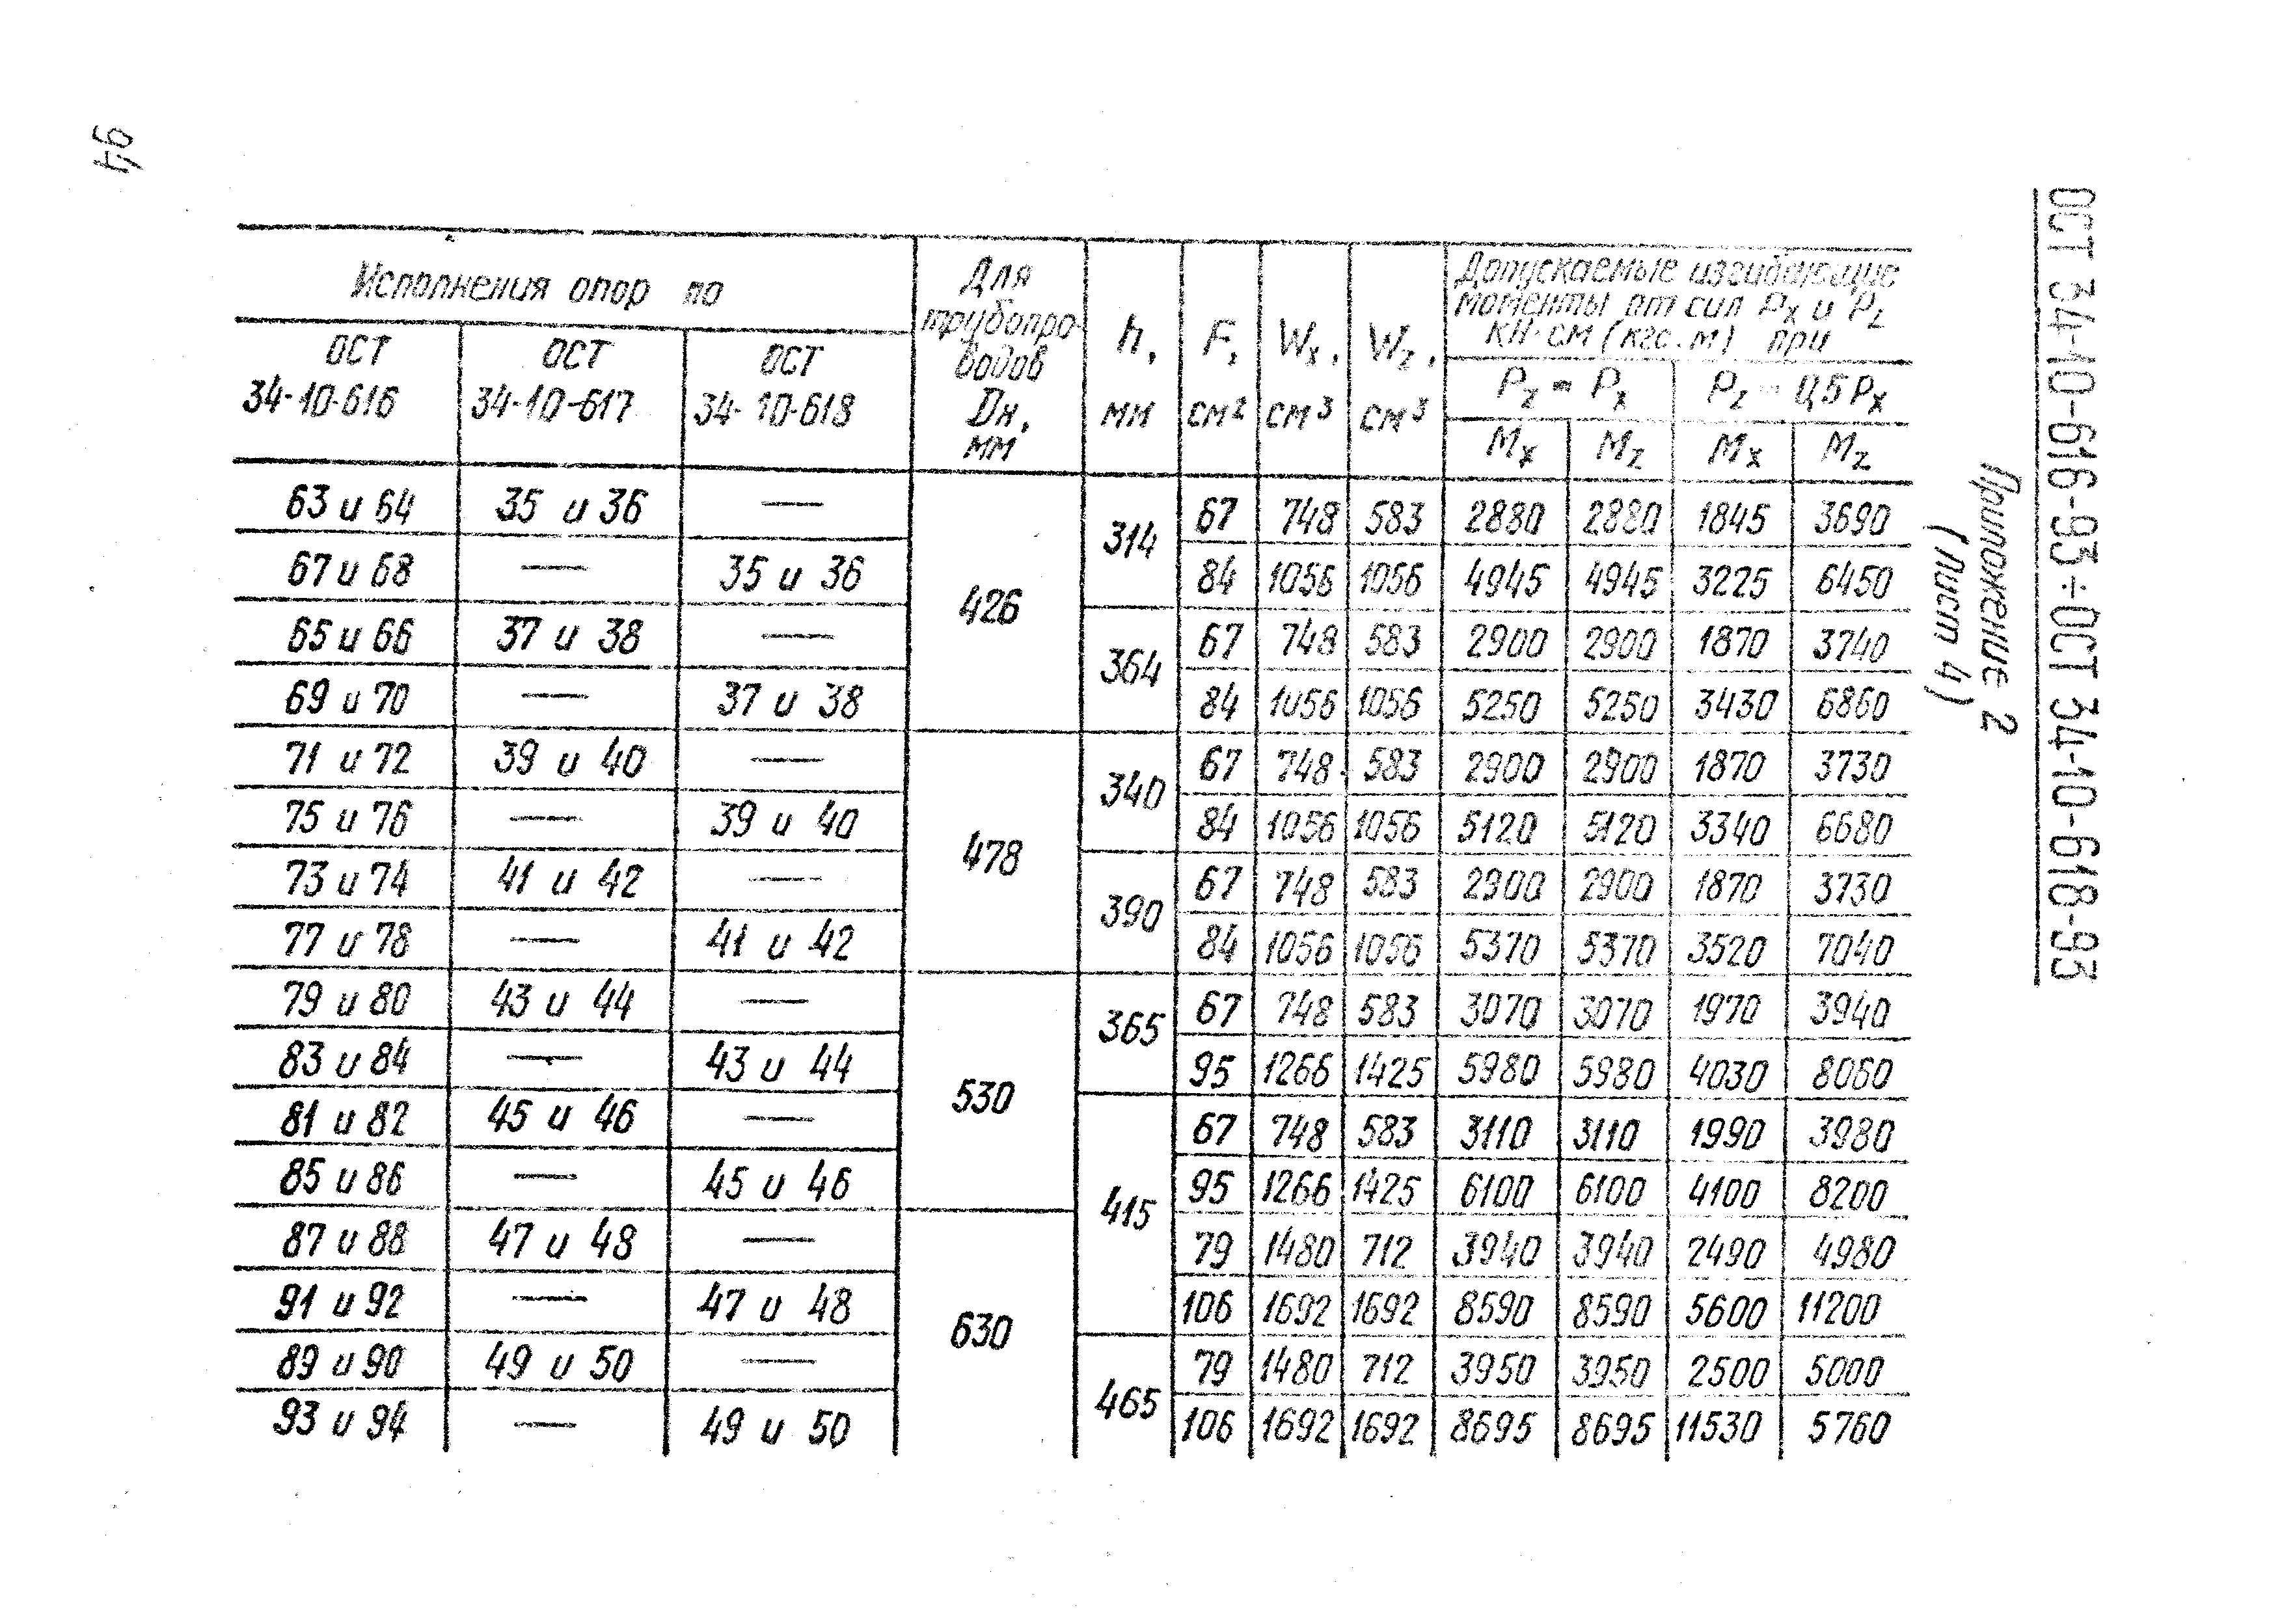 94
ОСТ 34-10-616-93÷ОСТ 34-10-618-93
Приложение 2
(Лист 4)
Исполнения опор по | Для трубопро-водов Dн, мм | h, мм | F, см² | Wx, см³ | Wz, см³ | Допускаемые изгибающие
моменты от сил Px и Pz
кН·см (кгс.м) при
ОСТ 34-10-616 | ОСТ 34-10-617 | ОСТ 34-10-618 | Pz = Px | Pz = 0,5 Px
Mx | Mz | Mx | Mz
63 и 64 | 35 и 36 | — | 426 | 314 | 67 | 748 | 583 | 2880 | 2880 | 1845 | 3690
67 и 68 | — | 35 и 36 | 84 | 1056 | 1056 | 4945 | 4945 | 3225 | 6450
65 и 66 | 37 и 38 | — | 364 | 67 | 748 | 583 | 2900 | 2900 | 1870 | 3740
69 и 70 | — | 37 и 38 | 84 | 1056 | 1056 | 5250 | 5250 | 3430 | 6860
71 и 72 | 39 и 40 | — | 478 | 340 | 67 | 748 | 583 | 2900 | 2900 | 1870 | 3730
75 и 76 | — | 39 и 40 | 84 | 1056 | 1056 | 5120 | 5120 | 3340 | 6680
73 и 74 | 41 и 42 | — | 390 | 67 | 748 | 583 | 2900 | 2900 | 1870 | 3730
77 и 78 | — | 41 и 42 | 84 | 1056 | 1056 | 5370 | 5370 | 3520 | 7040
79 и 80 | 43 и 44 | — | 530 | 365 | 67 | 748 | 583 | 3070 | 3070 | 1970 | 3940
83 и 84 | — | 43 и 44 | 95 | 1266 | 1425 | 5980 | 5980 | 4030 | 8060
81 и 82 | 45 и 46 | — | 415 | 67 | 748 | 583 | 3110 | 3110 | 1990 | 3980
85 и 86 | — | 45 и 46 | 95 | 1266 | 1425 | 6100 | 6100 | 4100 | 8200
87 и 88 | 47 и 48 | — | 630 | 79 | 1480 | 712 | 3940 | 3940 | 2490 | 4980
91 и 92 | — | 47 и 48 | 106 | 1692 | 1692 | 8590 | 8590 | 5600 | 11200
89 и 90 | 49 и 50 | — | 465 | 79 | 1480 | 712 | 3950 | 3950 | 2500 | 5000
93 и 94 | — | 49 и 50 | 106 | 1692 | 1692 | 8695 | 8695 | 11530 | 5760